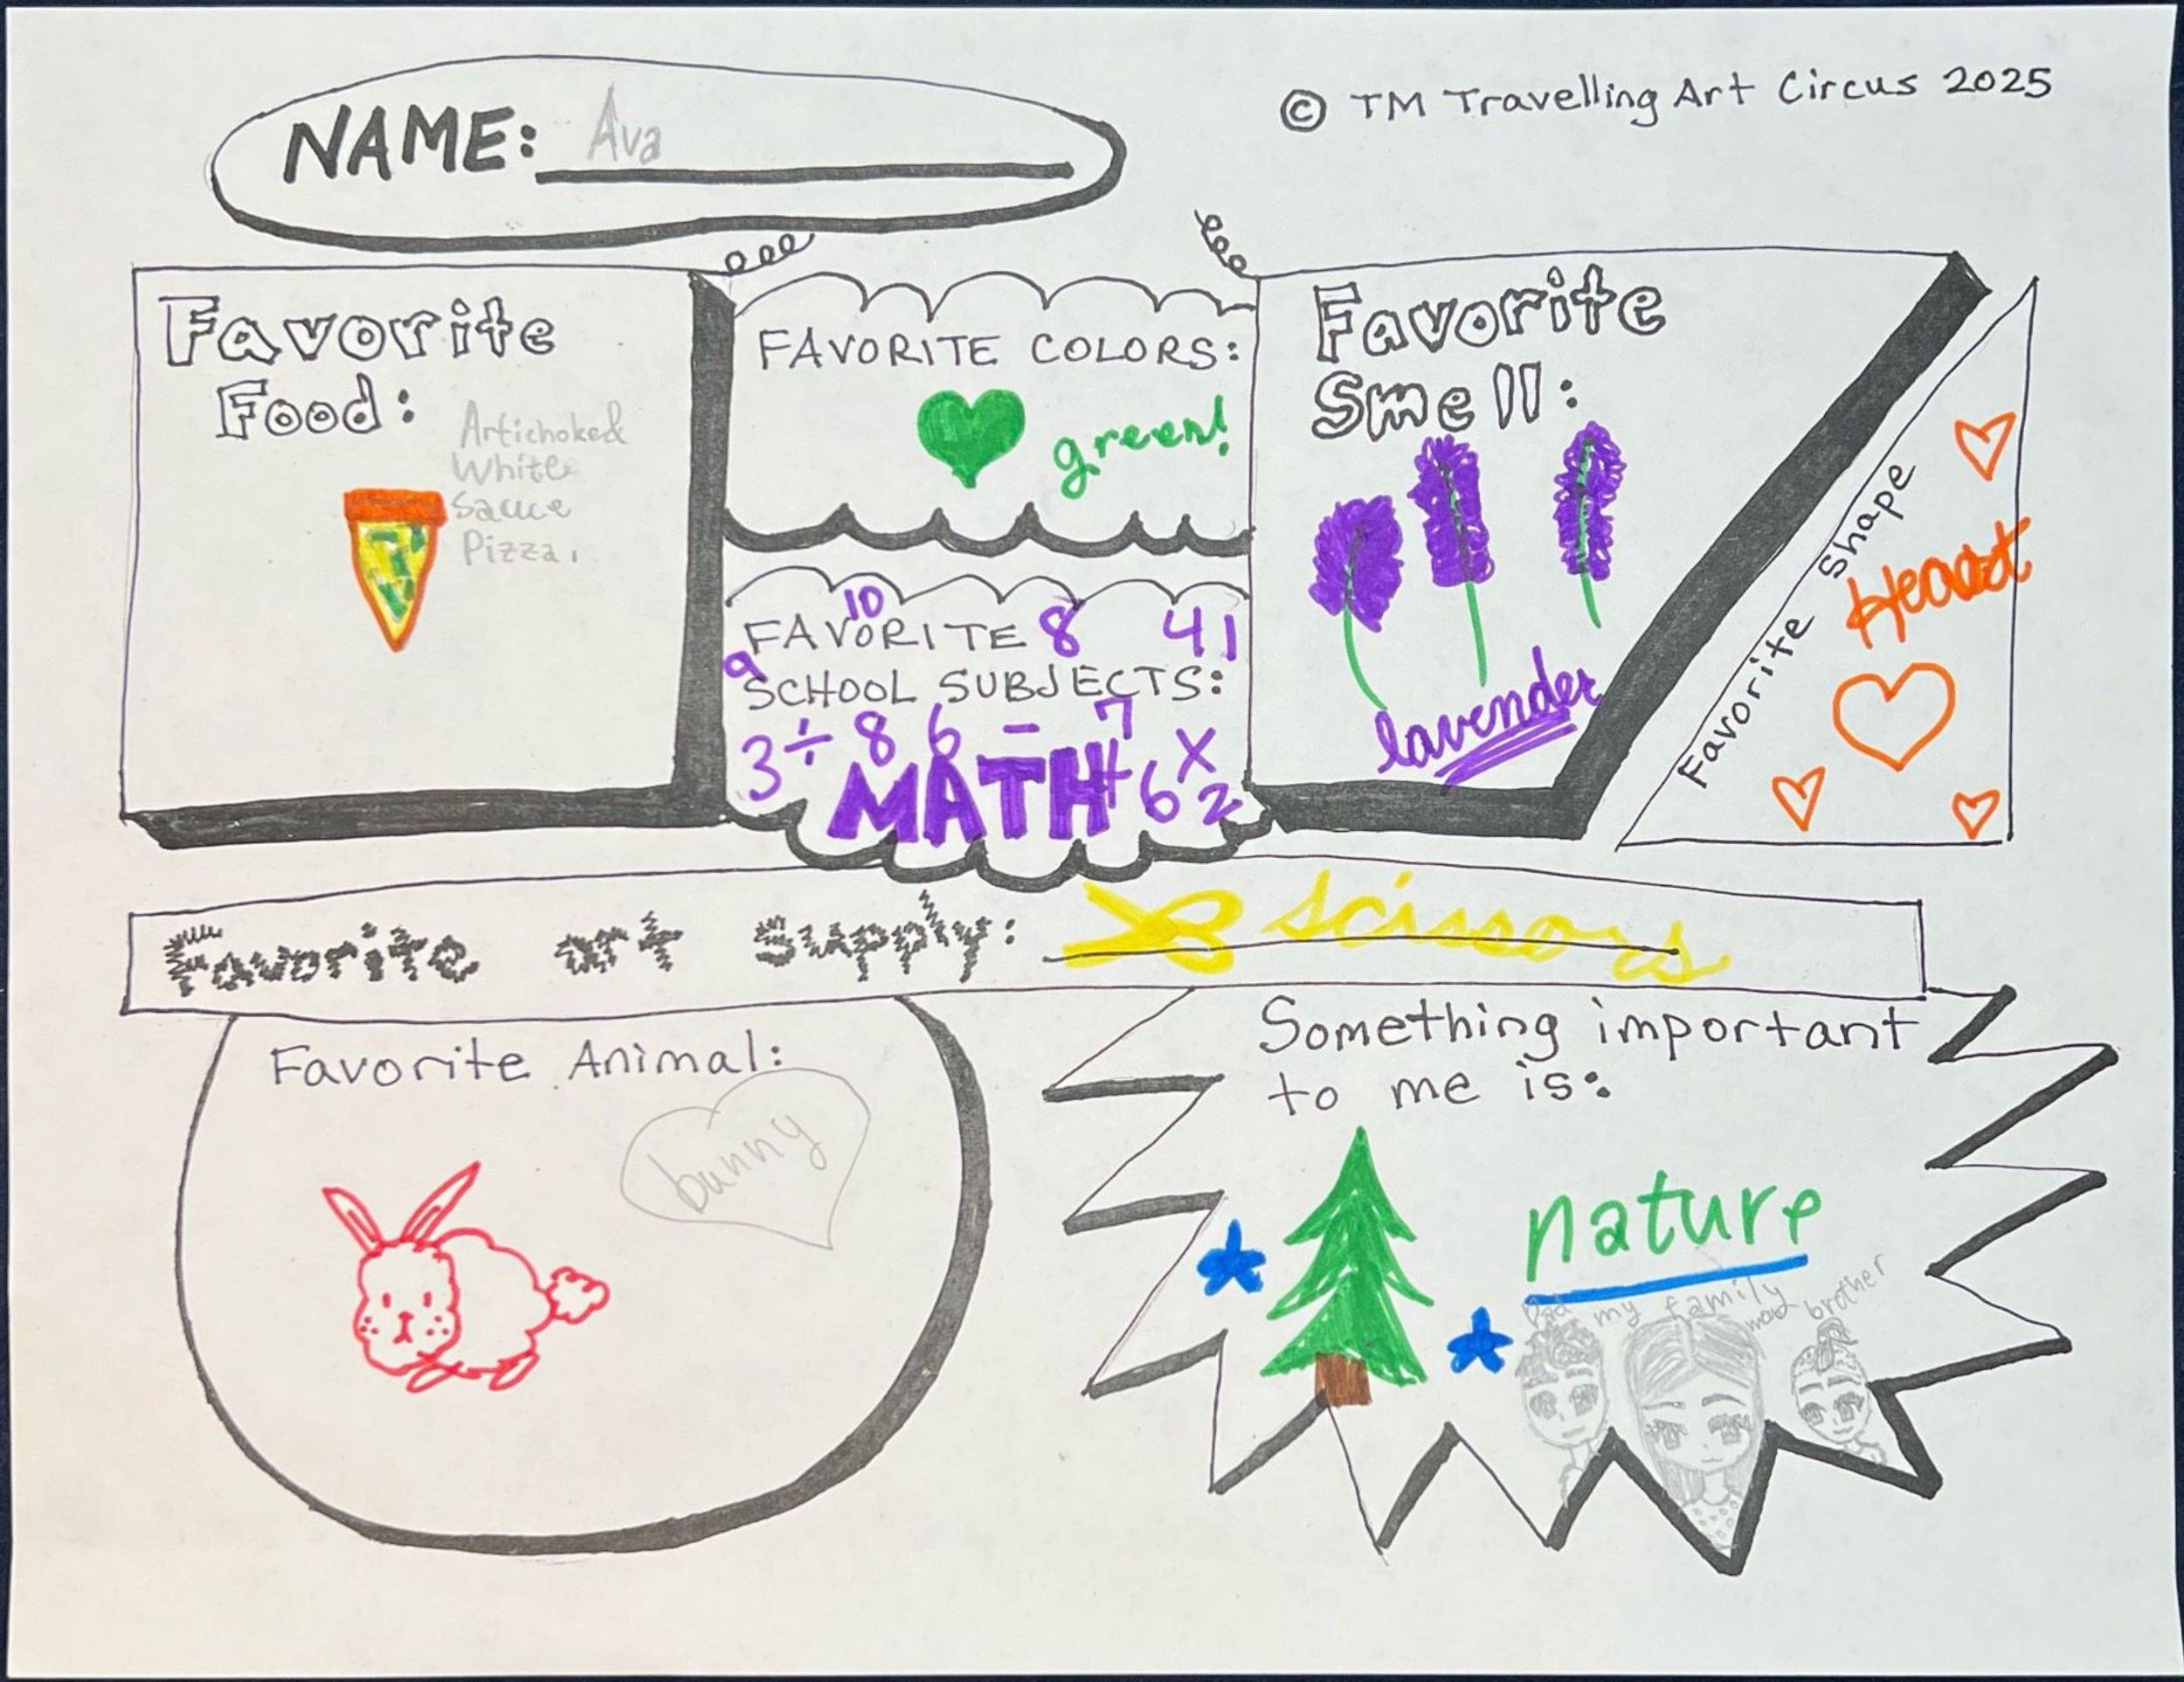 NAME: Ava
© TM Travelling Art Circus 2025
Favorite
Food:
Artichoke &
White
Sauce
Pizza.
FAVORITE COLORS:
green!
10
FAVORITE 8 41
9
SCHOOL SUBJECTS:
3 ÷ 8 6 - 7
MATH + 6 x 2
Favorite
Smell:
lavender
Favorite Shape
Heart
Favorite art supply: scissors
Favorite Animal:
bunny
Something important
to me is:
nature
Dad my family mod brother